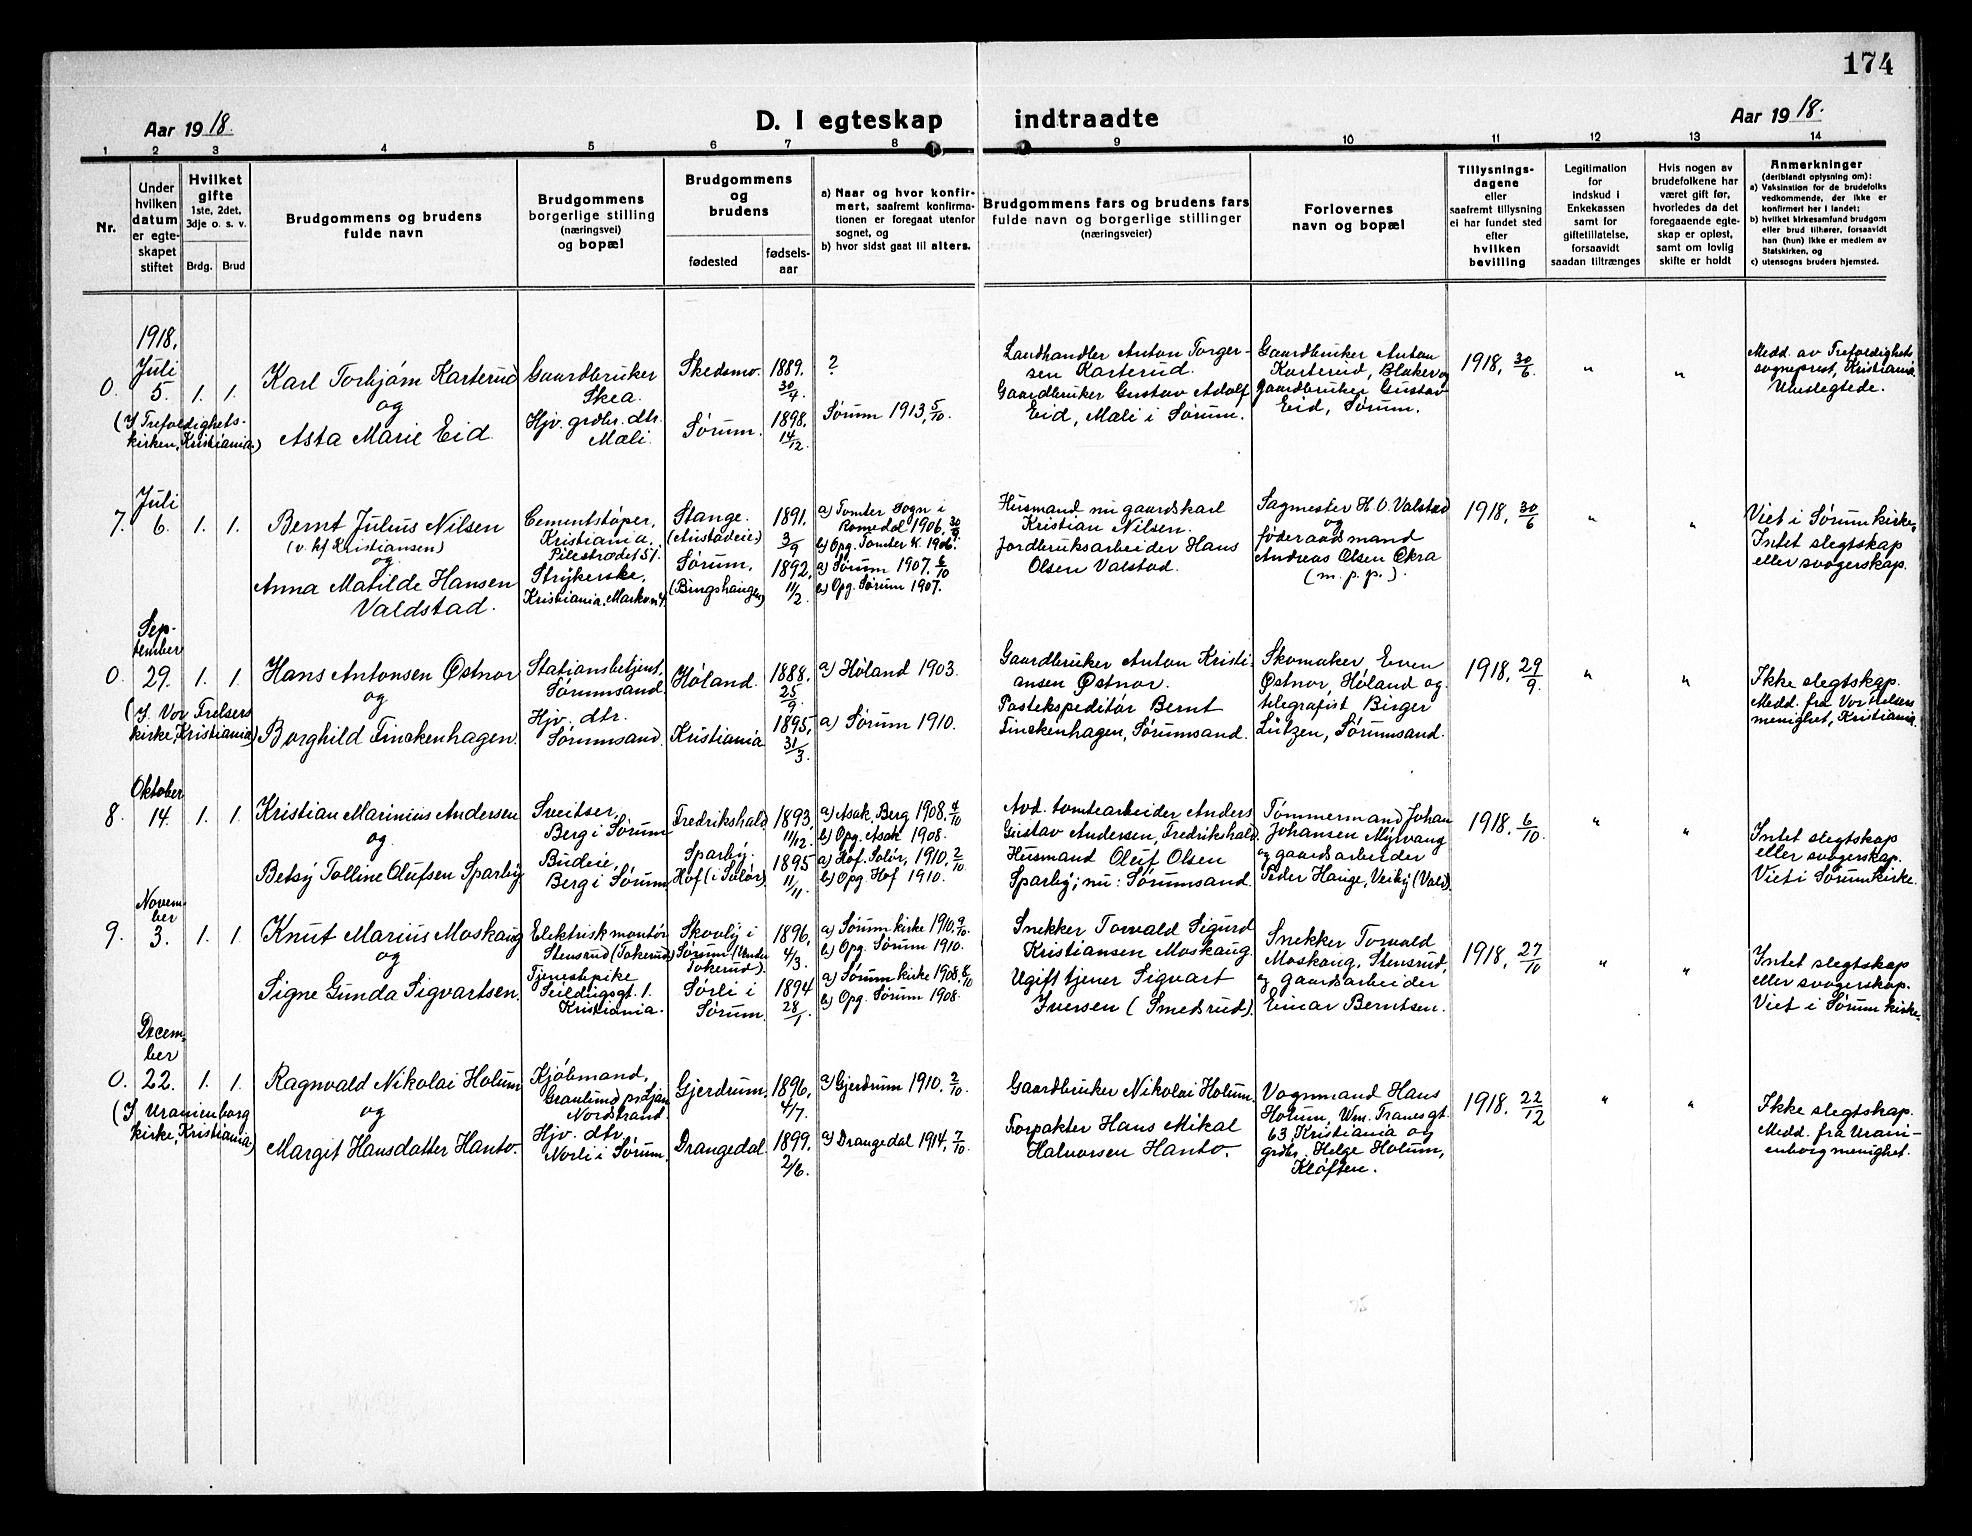 174
Aar 1918.
D. I egteskap indtraadte
Aar 1918.
1 2 3 4 5 6 7 8 9 10 11 12 13 14
Nr.
Under hvilken datum er egteskapet stiftet
Hvilket gifte 1ste, 2det, 3dje o. s. v.
Brdg. Brud
Brudgommens og brudens fulde navn
Brudgommens borgerlige stilling (næringsvei) og bopæl
Brudgommens og brudens
fødested
fødselsaar
a) Naar og hvor konfirmert, saafremt konfirmationen er foregaat utenfor sognet, og
b) hvor sidst gaat til alters.
Brudgommens fars og brudens fars fulde navn og borgerlige stillinger (næringsveier)
Forlovernes navn og bopæl
Tillysningsdagene eller saafremt tillysning ei har fundet sted efter hvilken bevilling
Legitimation for indskud i Enkekassen samt for giftetillatelse, forsaavidt saadan tiltrænges
Hvis nogen av brudefolkene har været gift før, hvorledes da det foregaaende egteskap er opløst, samt om lovlig skifte er holdt
Anmerkninger (deriblandt oplysning om):
a) Vaksination for de brudefolks vedkommende, der ikke er konfirmert her i landet;
b) hvilket kirkesamfund brudgom eller brud tilhører, forsaavidt han (hun) ikke er medlem av Statskirken, og
c) utensogns bruders hjemsted.
1918.
Juli
0. 5. 1. 1.
(I Trefoldighets-
kirken, Kristiania)
Karl Torbjørn Karterud
og
Asta Marie Eid.
Gaardbruker
Skea.
Hjv. grdbr. dtr.
Mali.
Skedsmo.
Sørum.
1889.
30/4
1898.
14/12
?
Sørum 1913, 5/10.
Landhandler Anton Torger-
sen Karterud.
Gaardbruker Gustav Adolf
Eid, Mali i Sørum.
Gaardbruker Anton
Karterud, Blaker og
gaardbruker Gustav
Eid, Sørum.
1918, 30/6
"
"
Medd. av Trefoldighets
sogneprest, Kristiania.
Ubeslegtede.
Juli
7. 6. 1. 1.
Bernt Julius Nilsen
(v. hf Kristiansen)
og
Anna Matilde Hansen
Valdstad.
Cementstøper,
Kristiania.
Pilestrædet 51.
Strykerske,
Kristiania, Markvn 4.
Stange.
Sørum.
(Bingshaugen)
1891.
3/9
1892.
11/2.
a) Tomter Sogn i
Romedal 1906, 30/9.
b) Opg. Tomter K. 1906.
a) Sørum 1907. 6/10
b) Opg. Sørum 1907.
Husmand nu gaardskarl
Kristian Nilsen.
Jordbruksarbeider Hans
Olsen Valstad.
Sagmester H. O. Valstad
og
føderaadsmand
Andreas Olsen Økra
(m. p. p.).
1918, 30/6
"
"
Viet i Sørum kirke.
Intet slegtskap
eller svogerskap.
Sep-
tember
0. 29. 1. 1.
(I Vor Frelsers
kirke, Kristiania)
Hans Antonsen Østnor
og
Borghild Finckenhagen.
Stationsbetjent,
Sørumsand.
Hjv. dtr.
Sørumsand.
Høland.
Kristiania
1888.
25/9.
1895,
31/3.
a) Høland 1903.
a) Sørum 1910.
Gaardbruker Anton Kristi-
ansen Østnor.
Postekspeditør Bernt
Finckenhagen, Sørumsand.
Skomaker, Even
Østnor, Høland og
telegrafist Birger
Lützen, Sørumsand.
1918, 29/9.
"
"
Ikke slegtskap.
Medd. fra Vor Frelsers
menighet, Kristiania.
Oktober
8. 14. 1. 1.
Kristian Marinius Andersen
og
Betsy Tolline Olufsen Sparby
Sveitser,
Berg i Sørum
Budeie,
Berg i Sørum
Fredrikshald
Sparby.
Hof (i Solør).
1893,
11/12.
1895
11/11.
a) Asak, Berg 1908. 4/10
b) Opg. Asak 1908.
a) Hof. Solør, 1910. 2/10
b) Opg. Hof 1910.
Avd. tomtearbeider Anders
Gustav Andersen, Fredrikshald.
Husmand Oluf Olsen
Sparby; nu: Sørumsand.
Tømmermand Johan
Johansen Myrvang
og gaardsarbeider
Peder Hauge, Veiby (Vald).
1918. 6/10.
"
"
Intet slegtskap
eller svogerskap.
Viet i Sørum kirke.
Novem-
ber
9. 3. 1. 1.
Knut Marius Moskaug
og
Signe Gunda Sigvartsen.
Elektrisk montør
Stensrud (Tokerud)
Tjenestepike
Kristiania.
Skovly i
Sørum (Under
Tokerud).
Sørli i
Sørum.
1896,
4/3.
1894
28/1
a) Sørum kirke 1910. 9/10.
b) Opg. Sørum 1910.
a) Sørum kirke 1908. 4/10
b) Opg. Sørum 1908.
Snekker Torvald Sigurd
Kristiansen Moskaug.
Ugift tjener Sigvart
Iversen (Smedsrud).
Snekker Torvald
Moskaug, Stensrud,
og gaardsarbeider
Einar Berntsen.
1918, 27/10
"
"
Intet slegtskap
eller svogerskap.
Viet i Sørum kirke.
Decem-
ber
0. 22. 1. 1.
(I Uranienborg
kirke, Kristiania)
Ragnvald Nikolai Holum
og
Margit Hansdatter Hanto.
Kjøbmand,
Nordstrand.
Hjv. dtr.
Norli i Sørum.
Gjerdrum.
Drangedal.
1896,
4/7.
1899.
2/6.
a) Gjerdrum 1910. 2/10
a) Drangedal 1914, 7/10.
Gaardbruker Nikolai Holum.
Forpakter Hans Mikal
Halvorsen Hanto.
Vognmand Hans
Holum, Wm. Tranes gt.
63, Kristiania og
grdbr. Helge Holum,
Kløften.
1918. 22/12
"
"
Ikke slegtskap.
Medd. fra Urani-
enborg menighet.